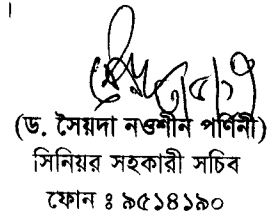 ।
(ড. সৈয়দা নওশীন পর্ণিনী)
সিনিয়র সহকারী সচিব
ফোন ঃ ৯৫১৪১৯০